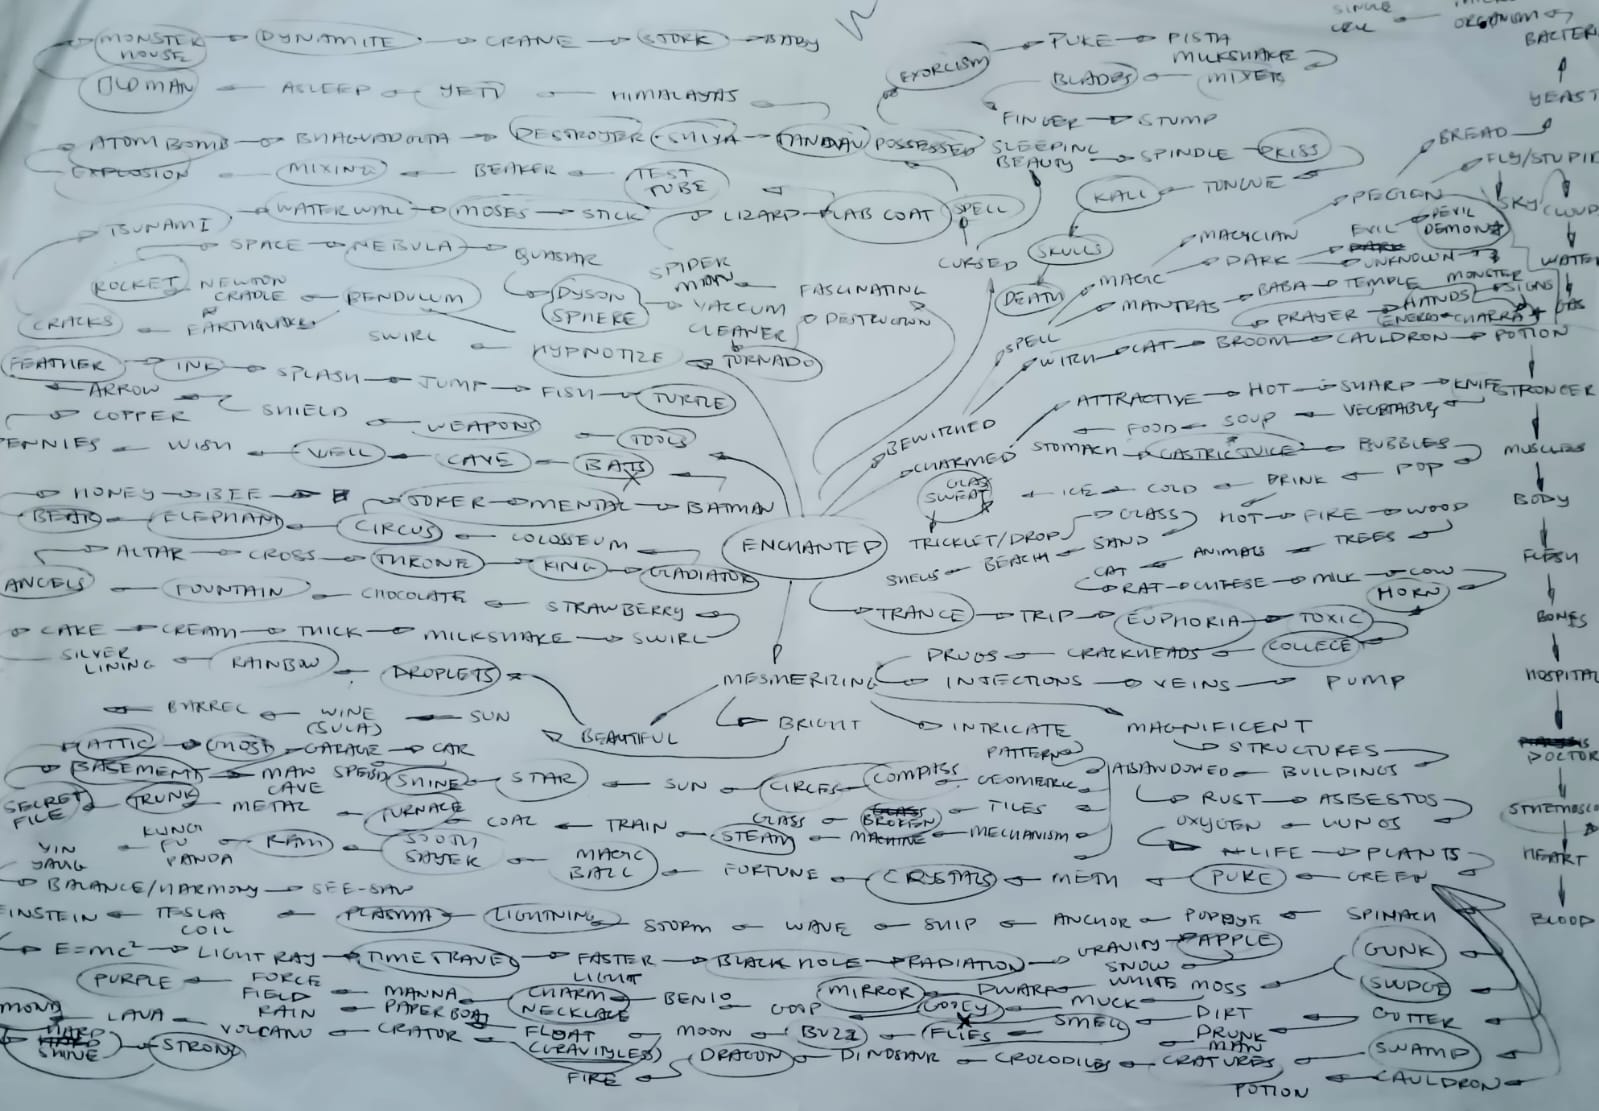 SINGLE CELL
ORGANISM
BACTERI
MONSTER HOUSE DYNAMITE CRANE STORK BABY
EXORCISM PUKE PISTA MILKSHAKE
OLD MAN ASLEEP YETI HIMALAYAS
BLADES MIXERS YEAST
FINGER STUMP
ATOM BOMB DESTROYER SHIVA TANDAV POSSESSED
SLEEPING BEAUTY SPINDLE PRISS BREAD
EXPLOSION MIXING BEAKER TEST TUBE
KALI TONGUE PEGION FLY/STUPID
TSUNAMI WATER WALL MOSES STICK LIZARD LAB COAT SPELL
SKY CLOUD
SPACE NEBULA QUASAR
CURSED SKULLS MAGICIAN EVIL DEVIL DEMON
ROCKET NEWTON CRADLE PENDULUM DYSON SPHERE SPIDER MAN VACCUM CLEANER FASCINATING
DEATH MAGIC DARK UNKNOWN WATER
CRACKS EARTHQUAKE SWIRL DESTRUCTION
MANTRAS BABA TEMPLE MONSTER SIGNS
SPELL PRAYER HANDS ENERGY CHAKRA GAS
HYPNOTIZE TORNADO
WITCH CAT BROOM CAULDRON POTION
FEATHER INK SPLASH JUMP FISH TURTLE
ARROW SHIELD
COPPER WEAPONS TOOLS
ATTRACTIVE HOT SHARP KNIFE STRONGER
FOOD SOUP VEGETABLES
BEWITCHED
PENNIES WISH WELL CAVE BATS
CHARMED STOMACH GASTRIC JUICE BUBBLES MUSCLES
SWEAT ICE COLD DRINK POP
HONEY BEE JOKER MENTAL BATMAN BODY
BEAR ELEPHANT CIRCUS COLOSSEUM
ENCHANTED
TRICKLET/DROP GLASS HOT FIRE WOOD
SHELLS BEACH SAND ANIMALS TREES
ALTAR CROSS THRONE KING GLADIATOR FLESH
CAT RAT CHEESE MILK COW
ANGELS FOUNTAIN CHOCOLATE STRAWBERRY
HORN
TRANCE TRIP EUPHORIA TOXIC BONES
CAKE CREAM THICK MILKSHAKE SWIRL
DRUGS CRACKHEADS COLLEGE
SILVER LINING RAINBOW DROPLETS
MESMERIZING INJECTIONS VEINS PUMP HOSPITAL
BARREL WINE (SULA) SUN
BEAUTIFUL BRIGHT INTRICATE PATTERN MAGNIFICENT
ATTIC GHOST GARAGE CAR
STRUCTURES DOCTOR
BASEMENT MAN CAVE SPEED SHINE STAR SUN CIRCLES COMPASS GEOMETRIC
ABANDONED BUILDINGS
SECRET FILE TRUNK METAL FURNACE COAL TRAIN STEAM MACHINE MECHANISM
GLASS BROKEN TILES
RUST ASBESTOS
OXYGEN LUNGS
YIN YANG KUNG FU PANDA RAM SOOTH SAYER MAGIC BALL FORTUNE CRYSTALS METH PURE GREEN
LIFE PLANTS HEART
BALANCE/HARMONY SEE-SAW
EINSTEIN TESLA COIL PLASMA LIGHTNING STORM WAVE SHIP ANCHOR POPEYE SPINACH BLOOD
E=MC² LIGHT RAY TIME TRAVEL FASTER LIGHT BLACK HOLE RADIATION GRAVITY APPLE
GUNK
PURPLE FORCE FIELD MANNA CHARM NECKLACE BEN10 GOOP MIRROR DWARF SNOW WHITE MOSS SLUDGE
GOOEY MUCK
LAVA RAIN PAPER BOAT
DIRT GUTTER
SHINE STRONG VOLCANO CRATOR FLOAT (GRAVITYLESS) MOON BUZZ FLIES SMELL DRUNK MAN
FIRE DRAGON DINOSAUR CROCODILES CRATURES SWAMP
POTION CAULDRON